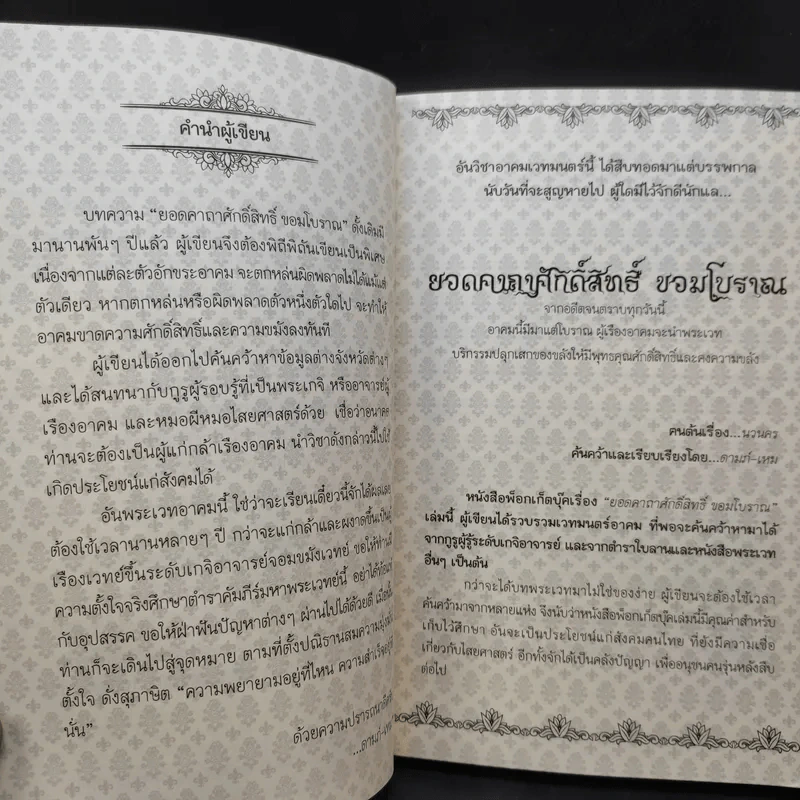 คำนำผู้เขียน
บทความ “ยอดคาถาศักดิ์สิทธิ์ ขอมโบราณ” ดั้งเดิมมี
มานานพันๆ ปีแล้ว ผู้เขียนจึงต้องพิถีพิถันเขียนเป็นพิเศษ
เนื่องจากแต่ละตัวอักขระอาคม จะตกหล่นผิดพลาดไม่ได้แม้แต่
ตัวเดียว หากตกหล่นหรือผิดพลาดตัวหนึ่งตัวใดไป จะทำให้
อาคมขาดความศักดิ์สิทธิ์และความขมังลงทันที
ผู้เขียนได้ออกไปค้นคว้าหาข้อมูลต่างจังหวัดต่างๆ
และได้สนทนากับกูรูผู้รอบรู้ที่เป็นพระเกจิ หรืออาจารย์ผู้
เรืองอาคม และหมอผีหมอไสยศาสตร์ด้วย เชื่อว่าอนาคต
ท่านจะต้องเป็นผู้แก่กล้าเรืองอาคม นำวิชาดังกล่าวนี้ไปใช้
เกิดประโยชน์แก่สังคมได้
อันพระเวทอาคมนี้ ใช่ว่าจะเรียนเดี๋ยวนี้จักได้ผลเลย
ต้องใช้เวลานานหลายๆ ปี กว่าจะแก่กล้าและผงาดขึ้นเป็นผู้
เรืองเวทย์ขึ้นระดับเกจิอาจารย์จอมขมังเวทย์ ขอให้ท่านที่
ความตั้งใจจริงศึกษาตำราคัมภีร์มหาพระเวทย์นี้ อย่าได้ท้อแท้
กับอุปสรรค ขอให้ฝ่าฟันปัญหาต่างๆ ผ่านไปได้ด้วยดี เมื่อนั้น
ท่านก็จะเดินไปสู่จุดหมาย ตามที่ตั้งปณิธานสมความมุ่งมั่น
ตั้งใจ ดั่งสุภาษิต “ความพยายามอยู่ที่ไหน ความสำเร็จอยู่ที่
นั่น”
ด้วยความปรารถนาดี
...ดามภ์-เหม
อันวิชาอาคมเวทมนตร์นี้ ได้สืบทอดมาแต่บรรพกาล
นับวันที่จะสูญหายไป ผู้ใดมีไว้จักดีนักแล...
ยอดคาถาศักดิ์สิทธิ์ ขอมโบราณ
จากอดีตจนตราบทุกวันนี้
อาคมนี้มีมาแต่โบราณ ผู้เรืองอาคมจะนำพระเวท
บริกรรมปลุกเสกของขลังให้มีพุทธคุณศักดิ์สิทธิ์และคงความขลัง
คนต้นเรื่อง...นวนคร
ค้นคว้าและเรียบเรียงโดย...ดามภ์-เหม
หนังสือพ็อกเก็ตบุ๊คเรื่อง “ยอดคาถาศักดิ์สิทธิ์ ขอมโบราณ”
เล่มนี้ ผู้เขียนได้รวบรวมเวทมนตร์อาคม ที่พอจะค้นคว้าหามาได้
จากกูรูผู้รู้ระดับเกจิอาจารย์ และจากตำราใบลานและหนังสือพระเวท
อื่นๆ เป็นต้น
กว่าจะได้บทพระเวทมาไม่ใช่ของง่าย ผู้เขียนจะต้องใช้เวลา
ค้นคว้ามาจากหลายแห่ง จึงนับว่าหนังสือพ็อกเก็ตบุ๊คเล่มนี้มีคุณค่าสำหรับ
เก็บไว้ศึกษา อันจะเป็นประโยชน์แก่สังคมคนไทย ที่ยังมีความเชื่อ
เกี่ยวกับไสยศาสตร์ อีกทั้งจักได้เป็นคลังปัญญา เพื่ออนุชนคนรุ่นหลังสืบ
ต่อไป